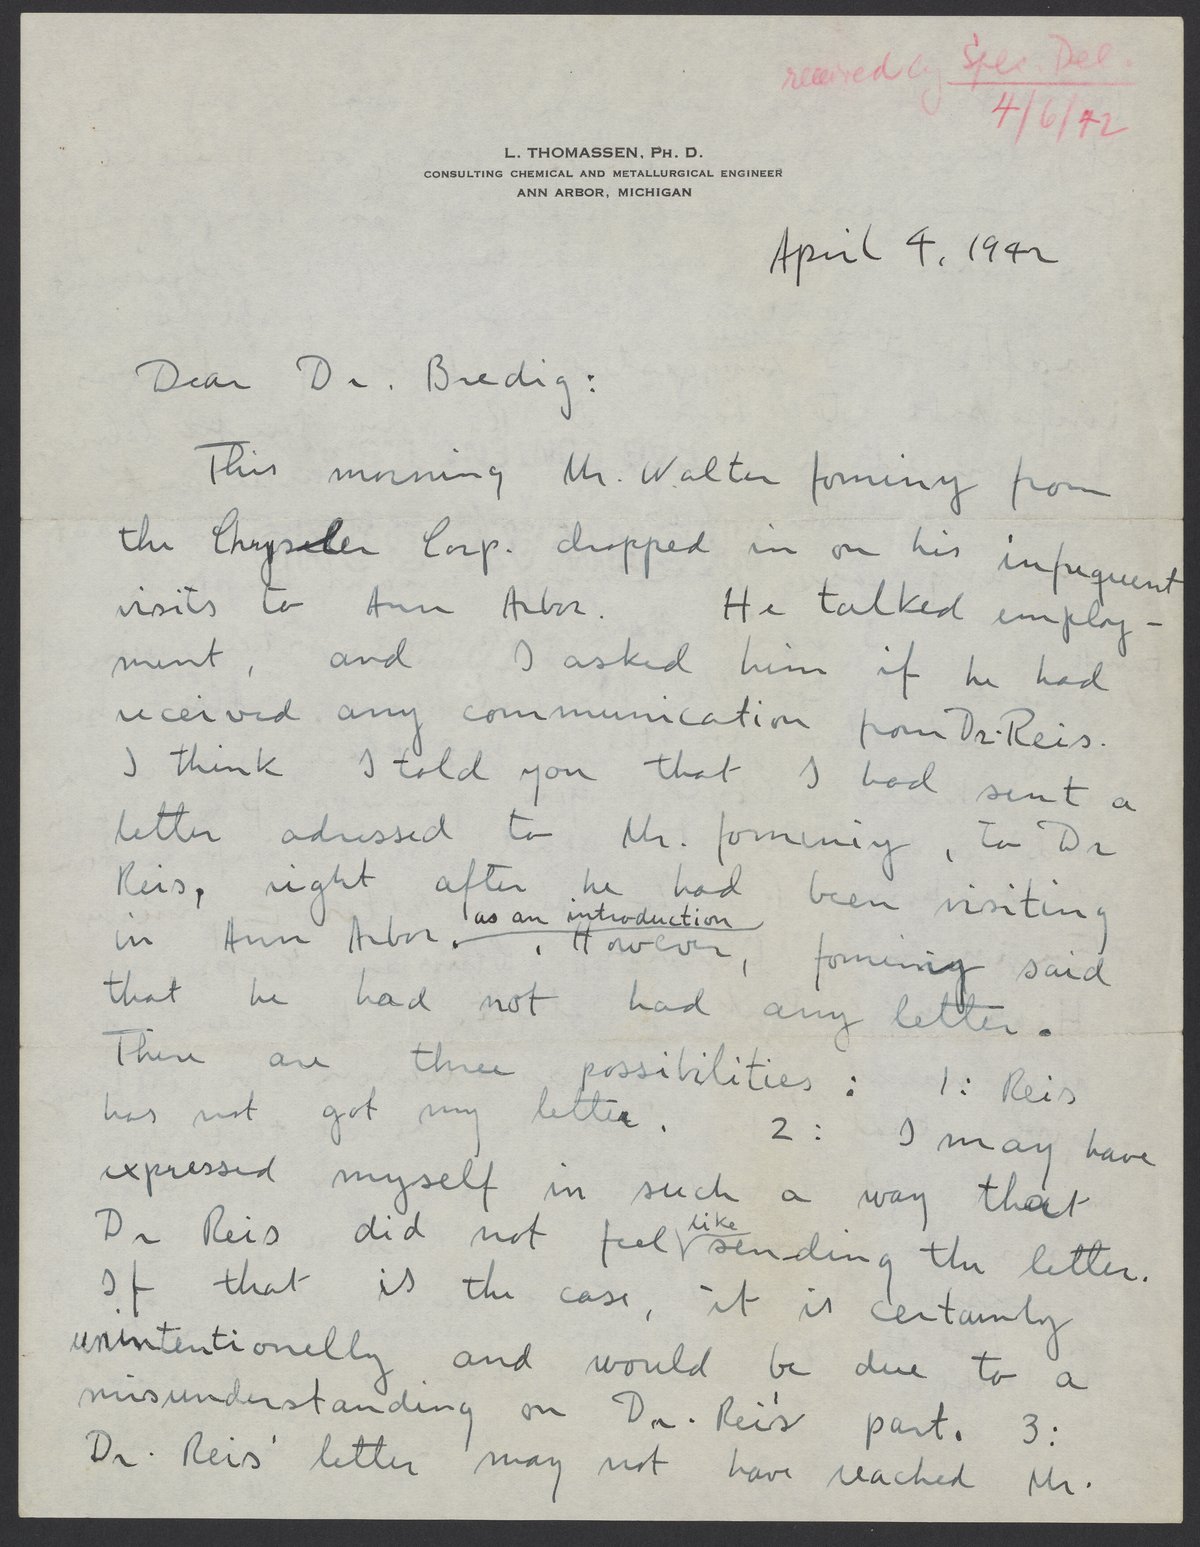 received by Spec. Del.
4/6/42
L. THOMASSEN, PH. D.
CONSULTING CHEMICAL AND METALLURGICAL ENGINEER
ANN ARBOR, MICHIGAN
April 4, 1942
Dear Dr. Bredig:
This morning Mr. Walter Jominy from
the Chrysler Corp. dropped in on his infrequent
visits to Ann Arbor. He talked employ-
ment, and I asked him if he had
received any communication from Dr. Reis.
I think I told you that I had sent a
letter adressed to Mr. Jominiy, to Dr
Reis, right after he had been visiting
as an introduction
in Ann Arbor. However, Jominiy said
that he had not had any letter.
There are three possibilities: 1: Reis
has not got my letter. 2: I may have
expressed myself in such a way that
Dr Reis did not feel like sending the letter.
If that is the case, it is certainly
unintentionelly and would be due to a
misunderstanding on Dr. Reis's part. 3:
Dr. Reis' letter may not have reached Mr.